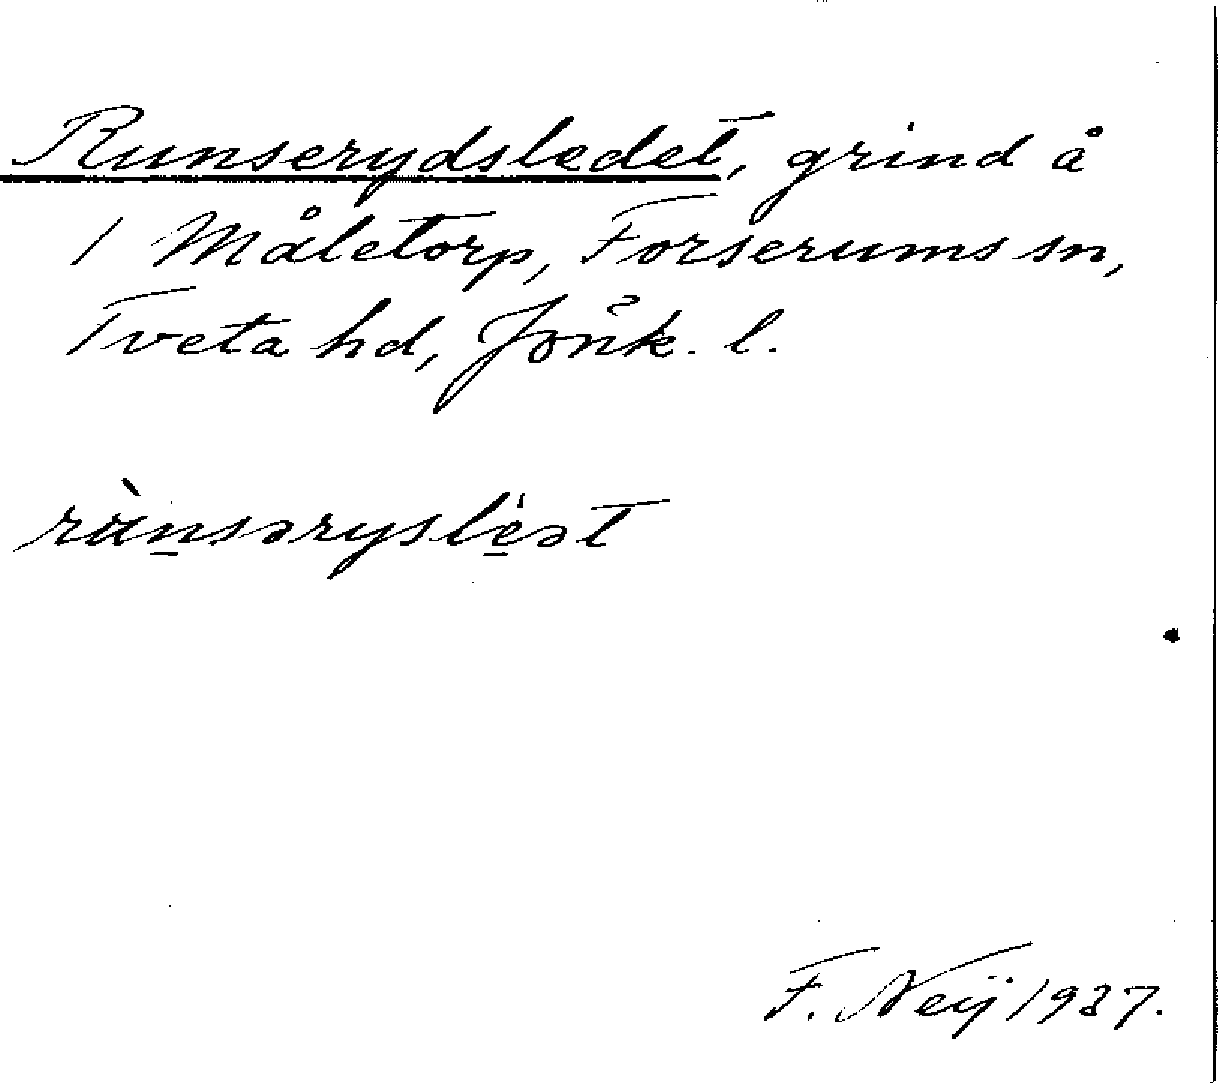 Runserydsledet, grind å
1 Måletorp, Forserums sn,
Tveta hd, Jönk. l.
rὰn̲səryslė̲ət
F. Neij 1937.